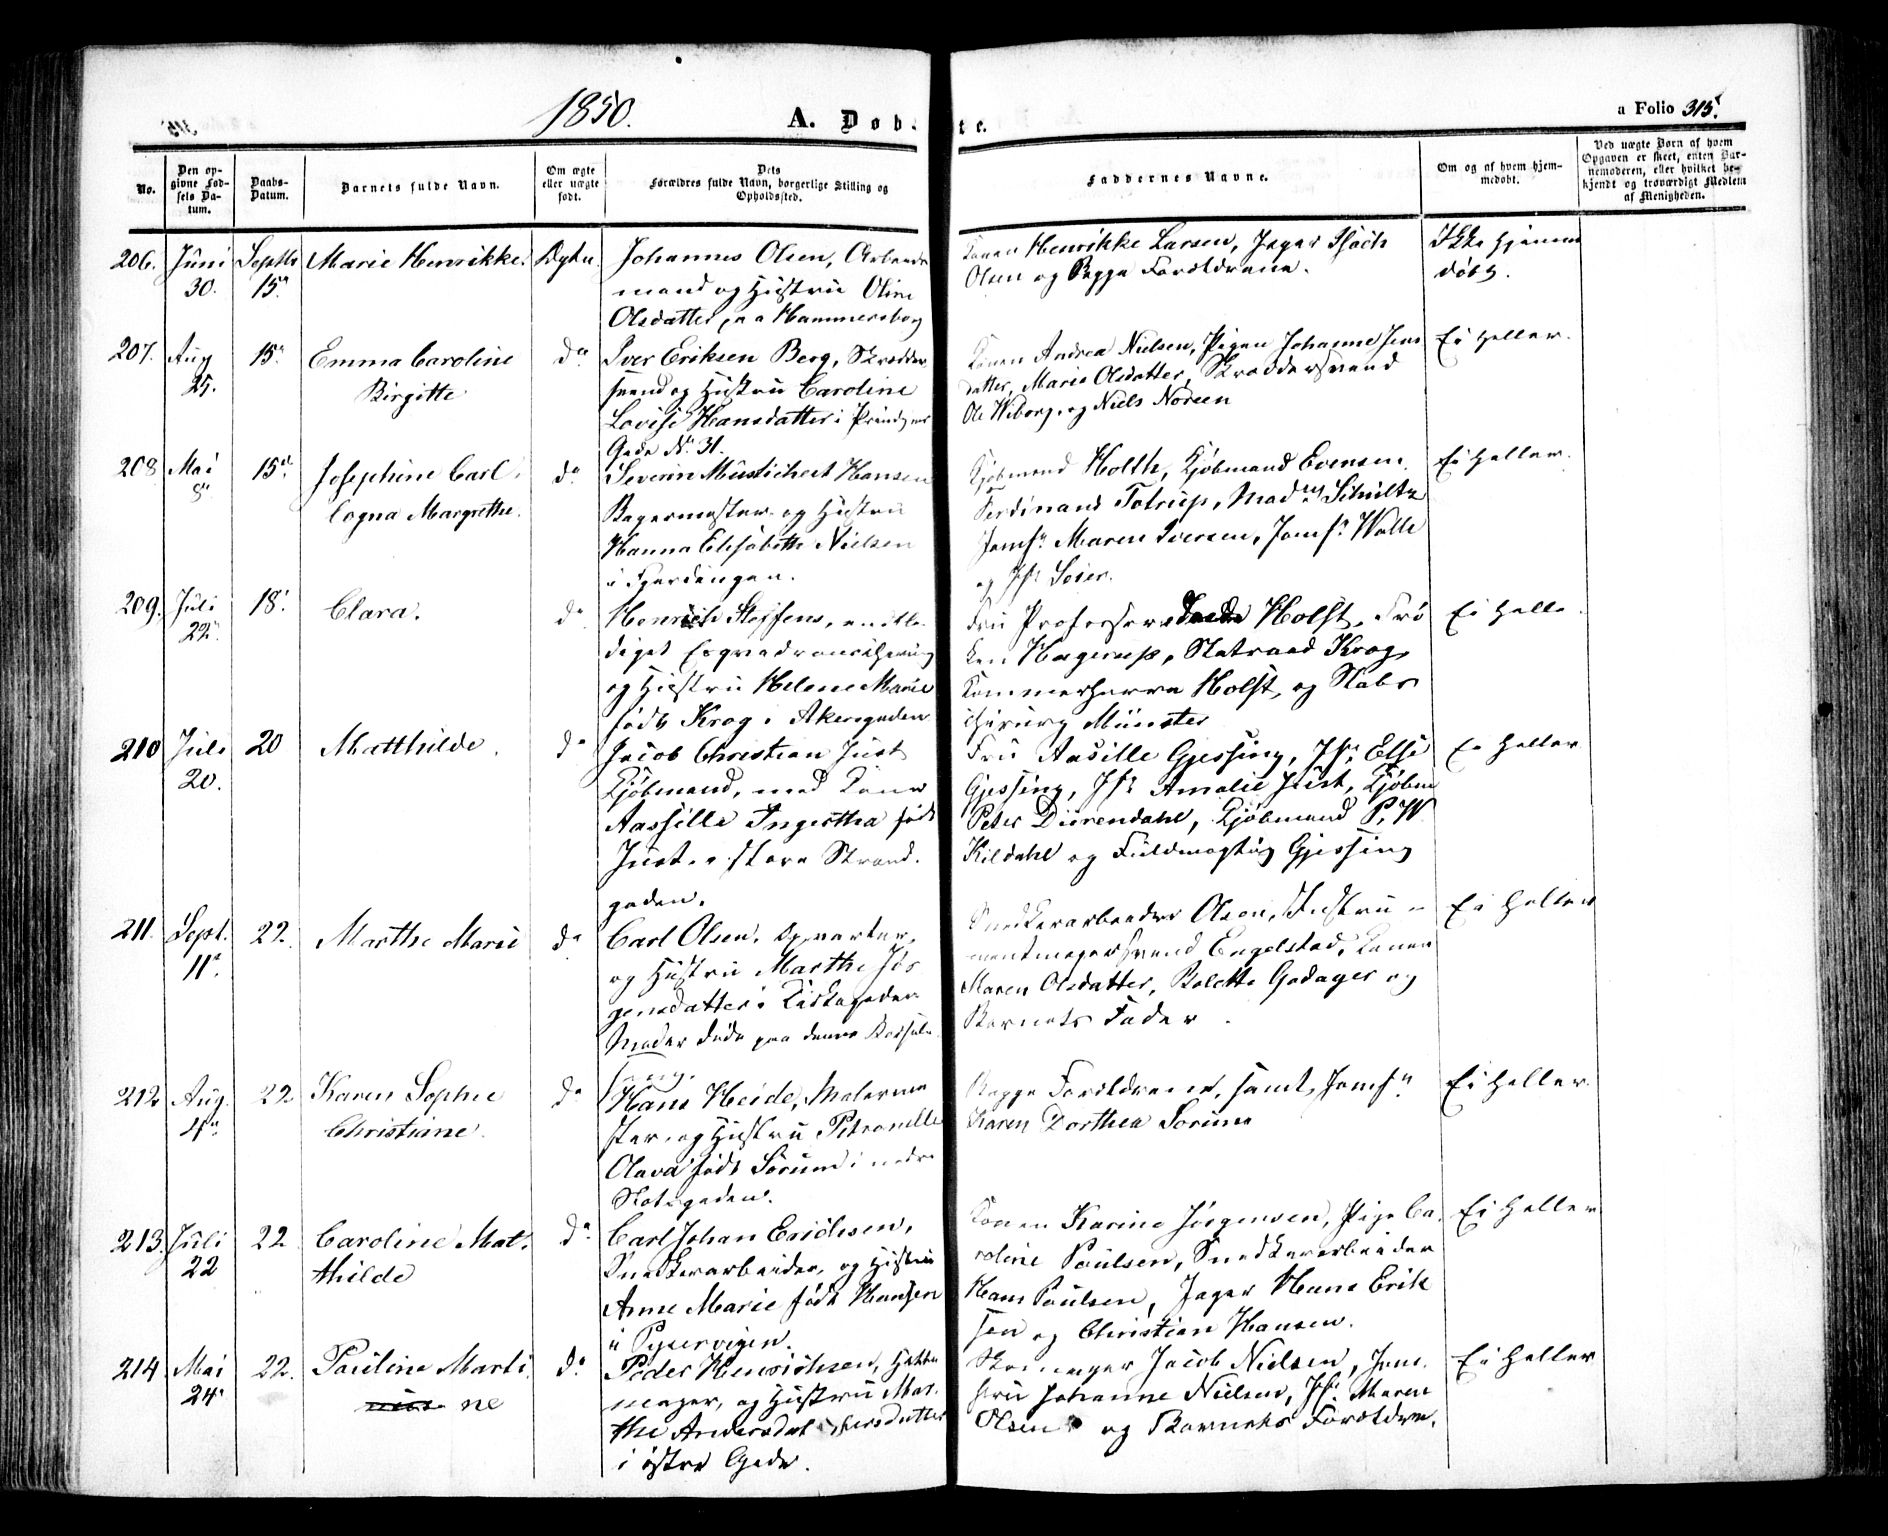 1850.
A. Døb-
te.
a Folio 315.
No.
Den op-
givne Fød-
sels Da-
tum.
Daabs-
Datum.
Barnets fulde Navn.
Om ægte
eller uægte
født.
Dets
Forældres fulde Navn, borgerlige Stilling og
Opholdssted.
Faddernes Navne.
Om og af hvem hjem-
medøbt.
Ved uægte Børn af hvem
Opgaven er skeet, enten Bar-
nemoderen, eller hvilket be-
kjendt og troværdigt Medlem
af Menigheden.
206. Juni 30. Septb 15de Marie Henrikke.
Johannes Olsen, Arbeids
mand og Hustru Oline
Olsdatter, paa Hammersborg
Konen Henrikke Larsen, Jæger
Olsen og Begge Forældrene.
Ikke hjemme
døbt.
207. Aug 25. 15de Emma Caroline
Birgitte
do
Iver Eriksen Berg, Skrædder
svend og Hustru Caroline
Lovise Hansdatter i Prindsens
Gade No. 31.
Konen Andrea Nielsen, Pigen Johanne Jens
datter, Marie Olsdatter, Skræddersvend
Ole Wiborg, og Niels Norsen
Ei heller.
208 Mai 8de 15de Josephine Carl
Cogna Margrethe.
do
Severin Hansen
Bagermester og Hustru
Hanna Elisabeth Nielsen
i Fjerdingen.
Kjøbmand Holth, Kjøbmand Evensen
Ferdinand Totrup, Madme Schultz
Jomfr Maren Iversen, Jomfr Walle
og Jfr
Ei heller.
209. Juli 22. 18. Clara.
do
Henrich Steffens, entle-
diget Esqvadronschirurg
og Hustru Helene Marie
født Krog i Akersgaden
Fru Professorinde Holst, Frø
ken Hagerup, Statraad Krog,
Kammerherre Holst, og Stabs
chirurg Münster
Ei heller
210 Juli 20. 20 Matthilde.
do
Jacob Christian Just
Kjøbmand, med Kone
Aassille Ingertha født
Just, i store Strand-
gaden.
Fru Aasille Gjessing, Jfr. Else
Gjessing, Jfr Amalie Just, Kjøbm
Peter Duerendahl, Kjøbmand P. W.
Kildahl og Fuldmægtig Gjessing
Ei heller
211. Sept. 11te 22. Marthe Marie
do
Carl Olsen, Opvarter,
og Hustru Marthe Jør
gensdatter i
Moder døde paa denne Barsel-
seng.
Snedkerarbeider Olsen, Instru-
mentmagersvend Engelstad, Konen
Maren Olsdatter, Bolette Godager og
Barnets Fader.
Ei heller
212 Aug. 22 Karen Sophie
Christiane.
do
Hans Heide, Malerme
ster, og Hustru Petronelle
Olava født Sørum i nedre
Slotsgaden.
Begge Forældrene, samt Jomfr
Karen Dorthea Sorum
Ei heller
213. Juli 22 22. Caroline Mat-
thilde
do
Carl Johan Erichsen,
Snedkerarbeider, og Hustru
Anne Marie født Hansen
i Pipervigen.
Konen Karine Jørgensen, Pige Ca-
roline Poulsen, Snedkerarbeider
Hans Poulsen, Jæger Hans Erik
sen og Christian Hansen.
Ei heller
214 Mai 24. 22. Pauline Marti
ne
do
Peder Henrichsen, Hatte
mager, og Hustru Mar-
the
i østre Gade.
Skomager Jacob Nielsen, Jom-
fru Johanne Nielsen, Jfr. Maren
Olsen og Barnets Forældre.
Ei heller